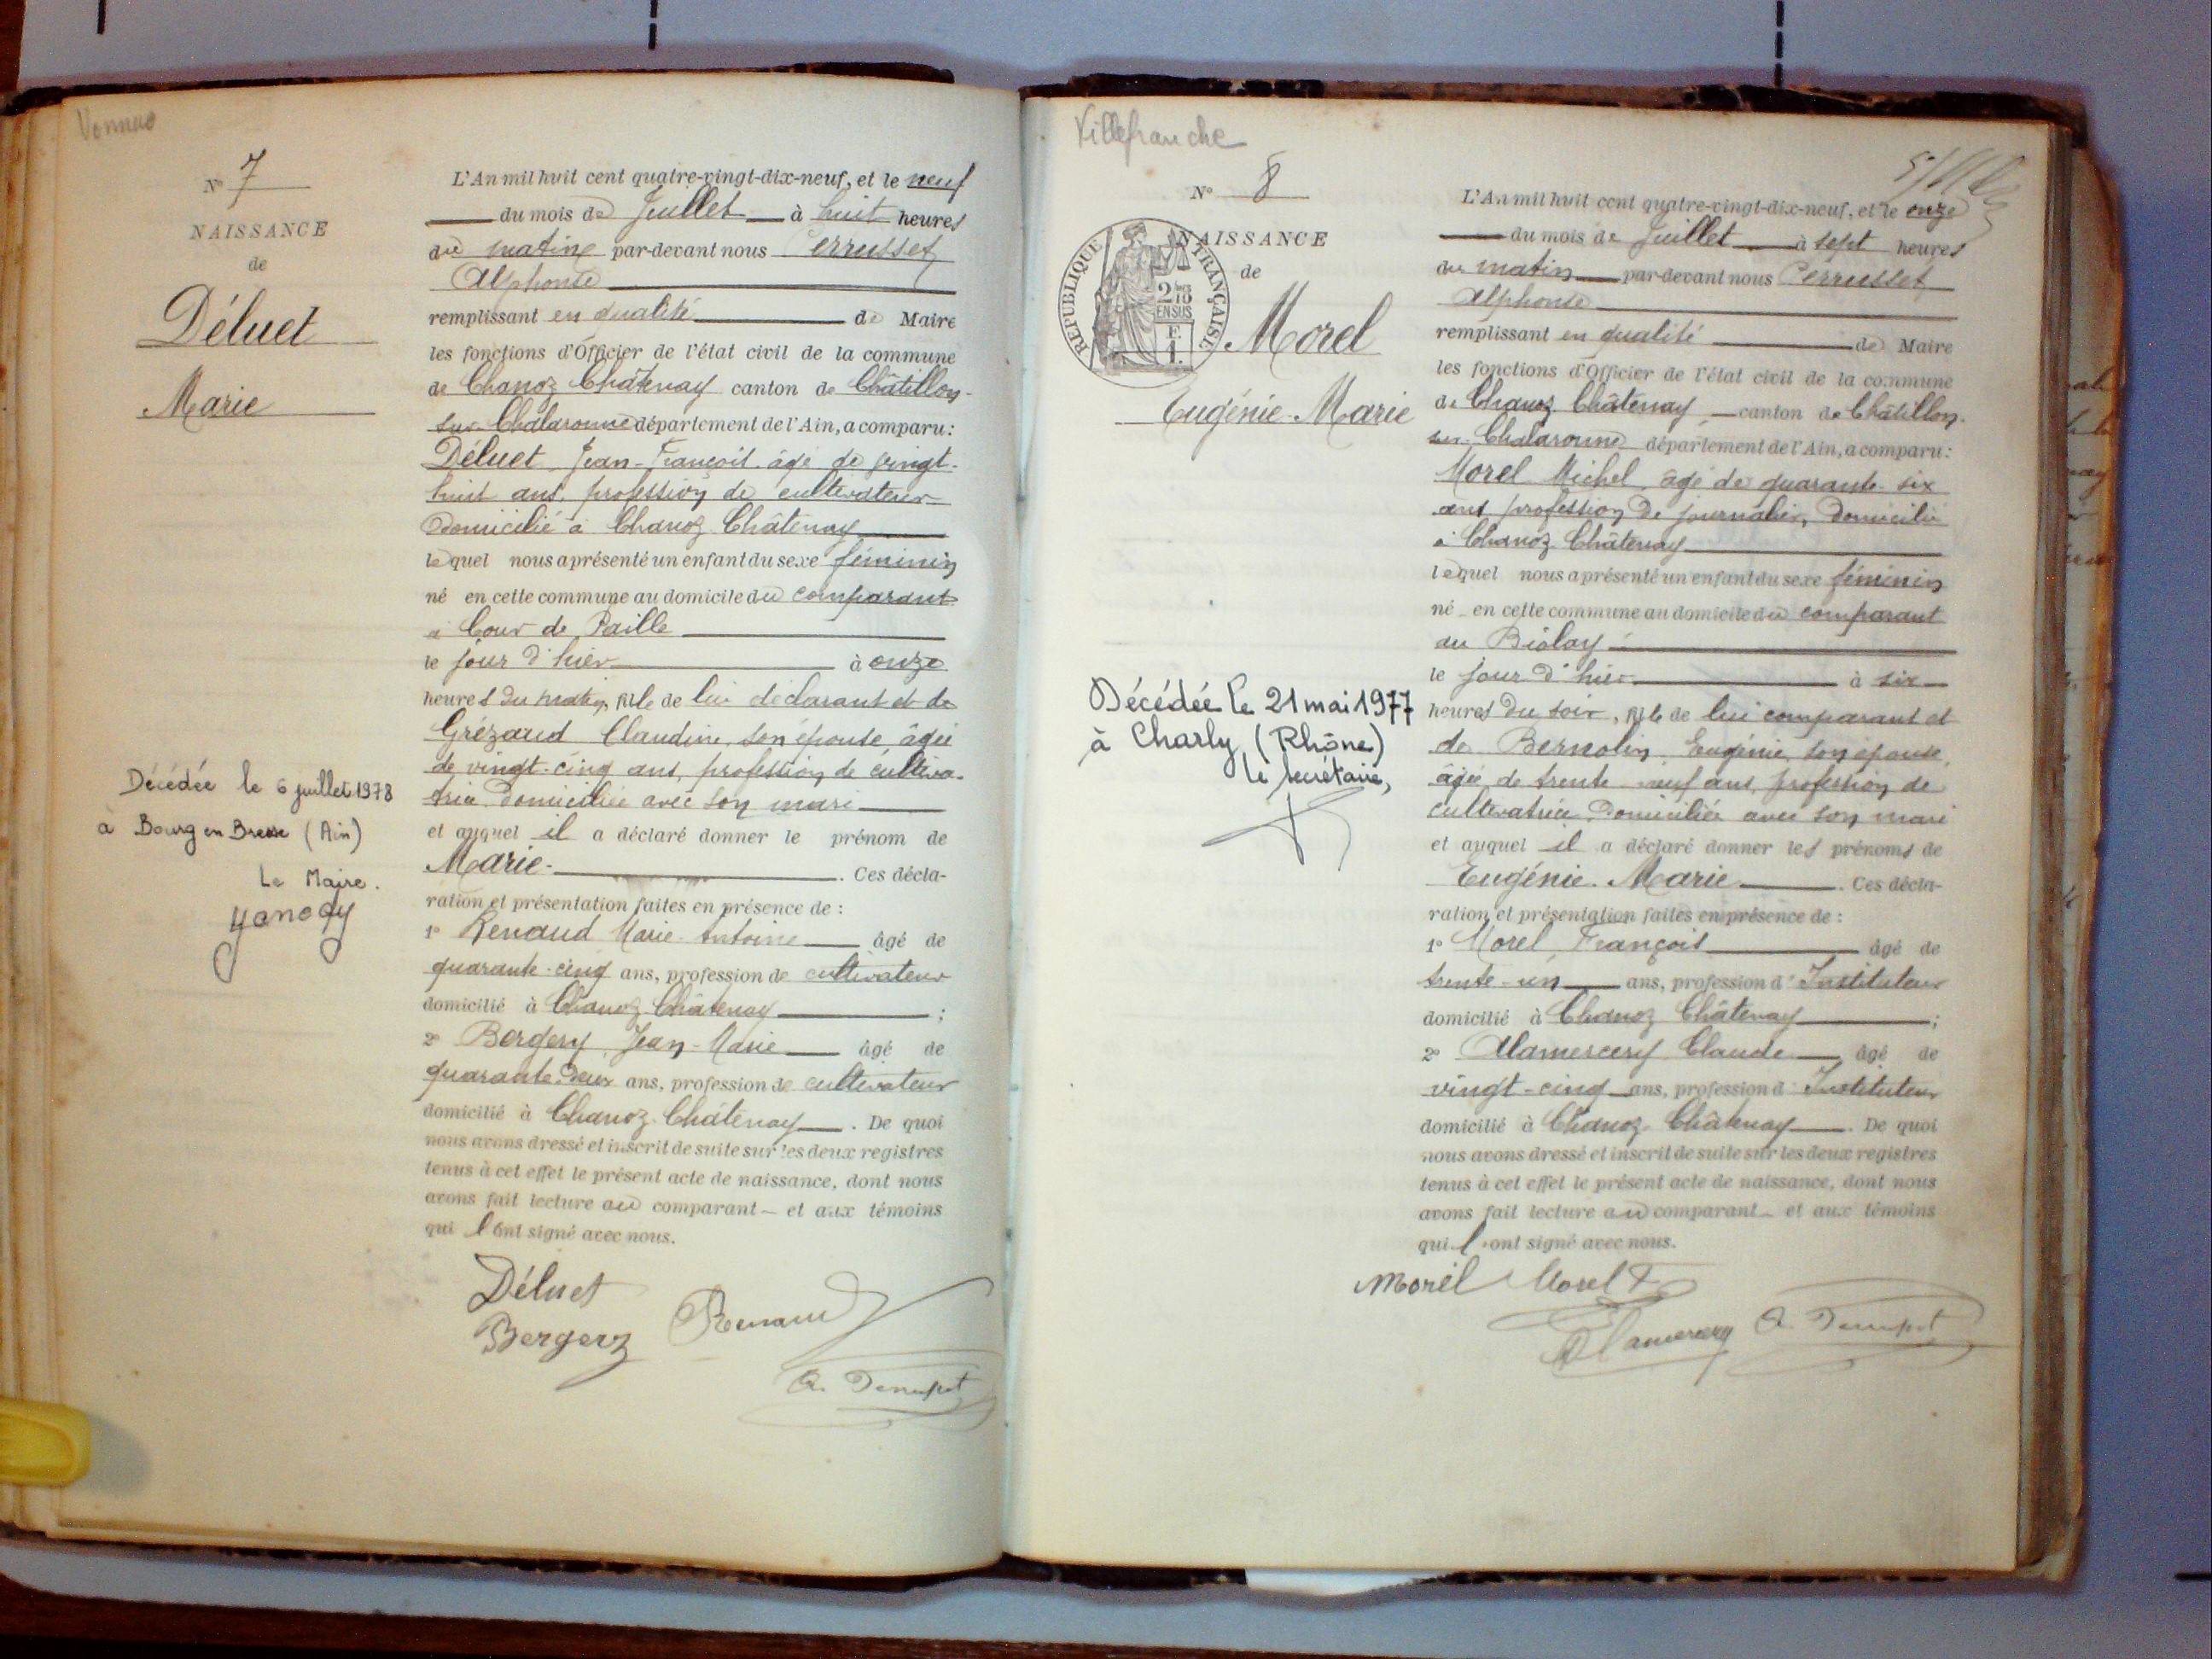 Vonnas
N° 7
NAISSANCE
de
Déluet
Marie
Décédée le 6 juillet 1978
à Bourg en Bresse (Ain)
Le Maire.
L'An mil huit cent quatre-vingt-dix-neuf, et le neuf
du mois de Juillet à huit heures
du matin par-devant nous Perrusset
Alphonse
remplissant en qualité de Maire
les fonctions d'Officier de l'état civil de la commune
de Chanoz Châtenay canton de Châtillon-
sur Chalaronne département de l'Ain, a comparu:
Déluet Jean-François âgé de vingt-
huit ans, profession de cultivateur
domicilié à Chanoz Châtenay
lequel nous a présenté un enfant du sexe féminin
né en cette commune au domicile du comparant
à Cour de Paille
le jour d'hier à onze
heures du matin, fille de lui déclarant et de
Grézaud Claudine, son épouse âgée
de vingt-cinq ans, profession de cultiva-
trice domiciliée avec son mari
et auquel il a déclaré donner le prénom de
Marie. Ces décla-
ration et présentation faites en présence de :
1° Renaud Marie-Antoine âgé de
quarante-cinq ans, profession de cultivateur
domicilié à Chanoz-Châtenay ;
2° Bergery Jean-Marie âgé de
quarante-deux ans, profession de cultivateur
domicilié à Chanoz-Châtenay. De quoi
nous avons dressé et inscrit de suite sur les deux registres
tenus à cet effet le présent acte de naissance, dont nous
avons fait lecture au comparant et aux témoins
qui l'ont signé avec nous.
Déluet
Renaud
Bergery
Villefranche
N° 8
NAISSANCE
de
RÉPUBLIQUE FRANÇAISE
2/10 ENSUS
E
1.
Morel
Eugénie-Marie
Décédée le 21 mai 1977
à Charly (Rhône)
le secrétaire,
L'An mil huit cent quatre-vingt-dix-neuf, et le onze
du mois de Juillet à sept heures
du matin par-devant nous Perrusset
Alphonse
remplissant en qualité de Maire
les fonctions d'Officier de l'état civil de la commune
de Chanoz Châtenay canton de Châtillon-
sur-Chalaronne département de l'Ain, a comparu:
Morel Michel, âgé de quarante-six
ans profession de journalier, domicilié
à Chanoz Châtenay
lequel nous a présenté un enfant du sexe féminin
né en cette commune au domicile du comparant
au Biolay
le jour d'hier à six
heures du soir, fille de lui comparant et
de Bernolin, Eugénie, son épouse,
âgée de trente-neuf ans, profession de
cultivatrice domiciliée avec son mari
et auquel il a déclaré donner les prénoms de
Eugénie-Marie. Ces décla-
ration et présentation faites en présence de :
1° Morel, François âgé de
trente-un ans, profession d'Instituteur
domicilié à Chanoz Châtenay ;
2° Alamercery Claude âgé de
vingt-cinq ans, profession d'Instituteur
domicilié à Chanoz Châtenay. De quoi
nous avons dressé et inscrit de suite sur les deux registres
tenus à cet effet le présent acte de naissance, dont nous
avons fait lecture au comparant et aux témoins
qui l'ont signé avec nous.
Morel Morel F
Alamercery